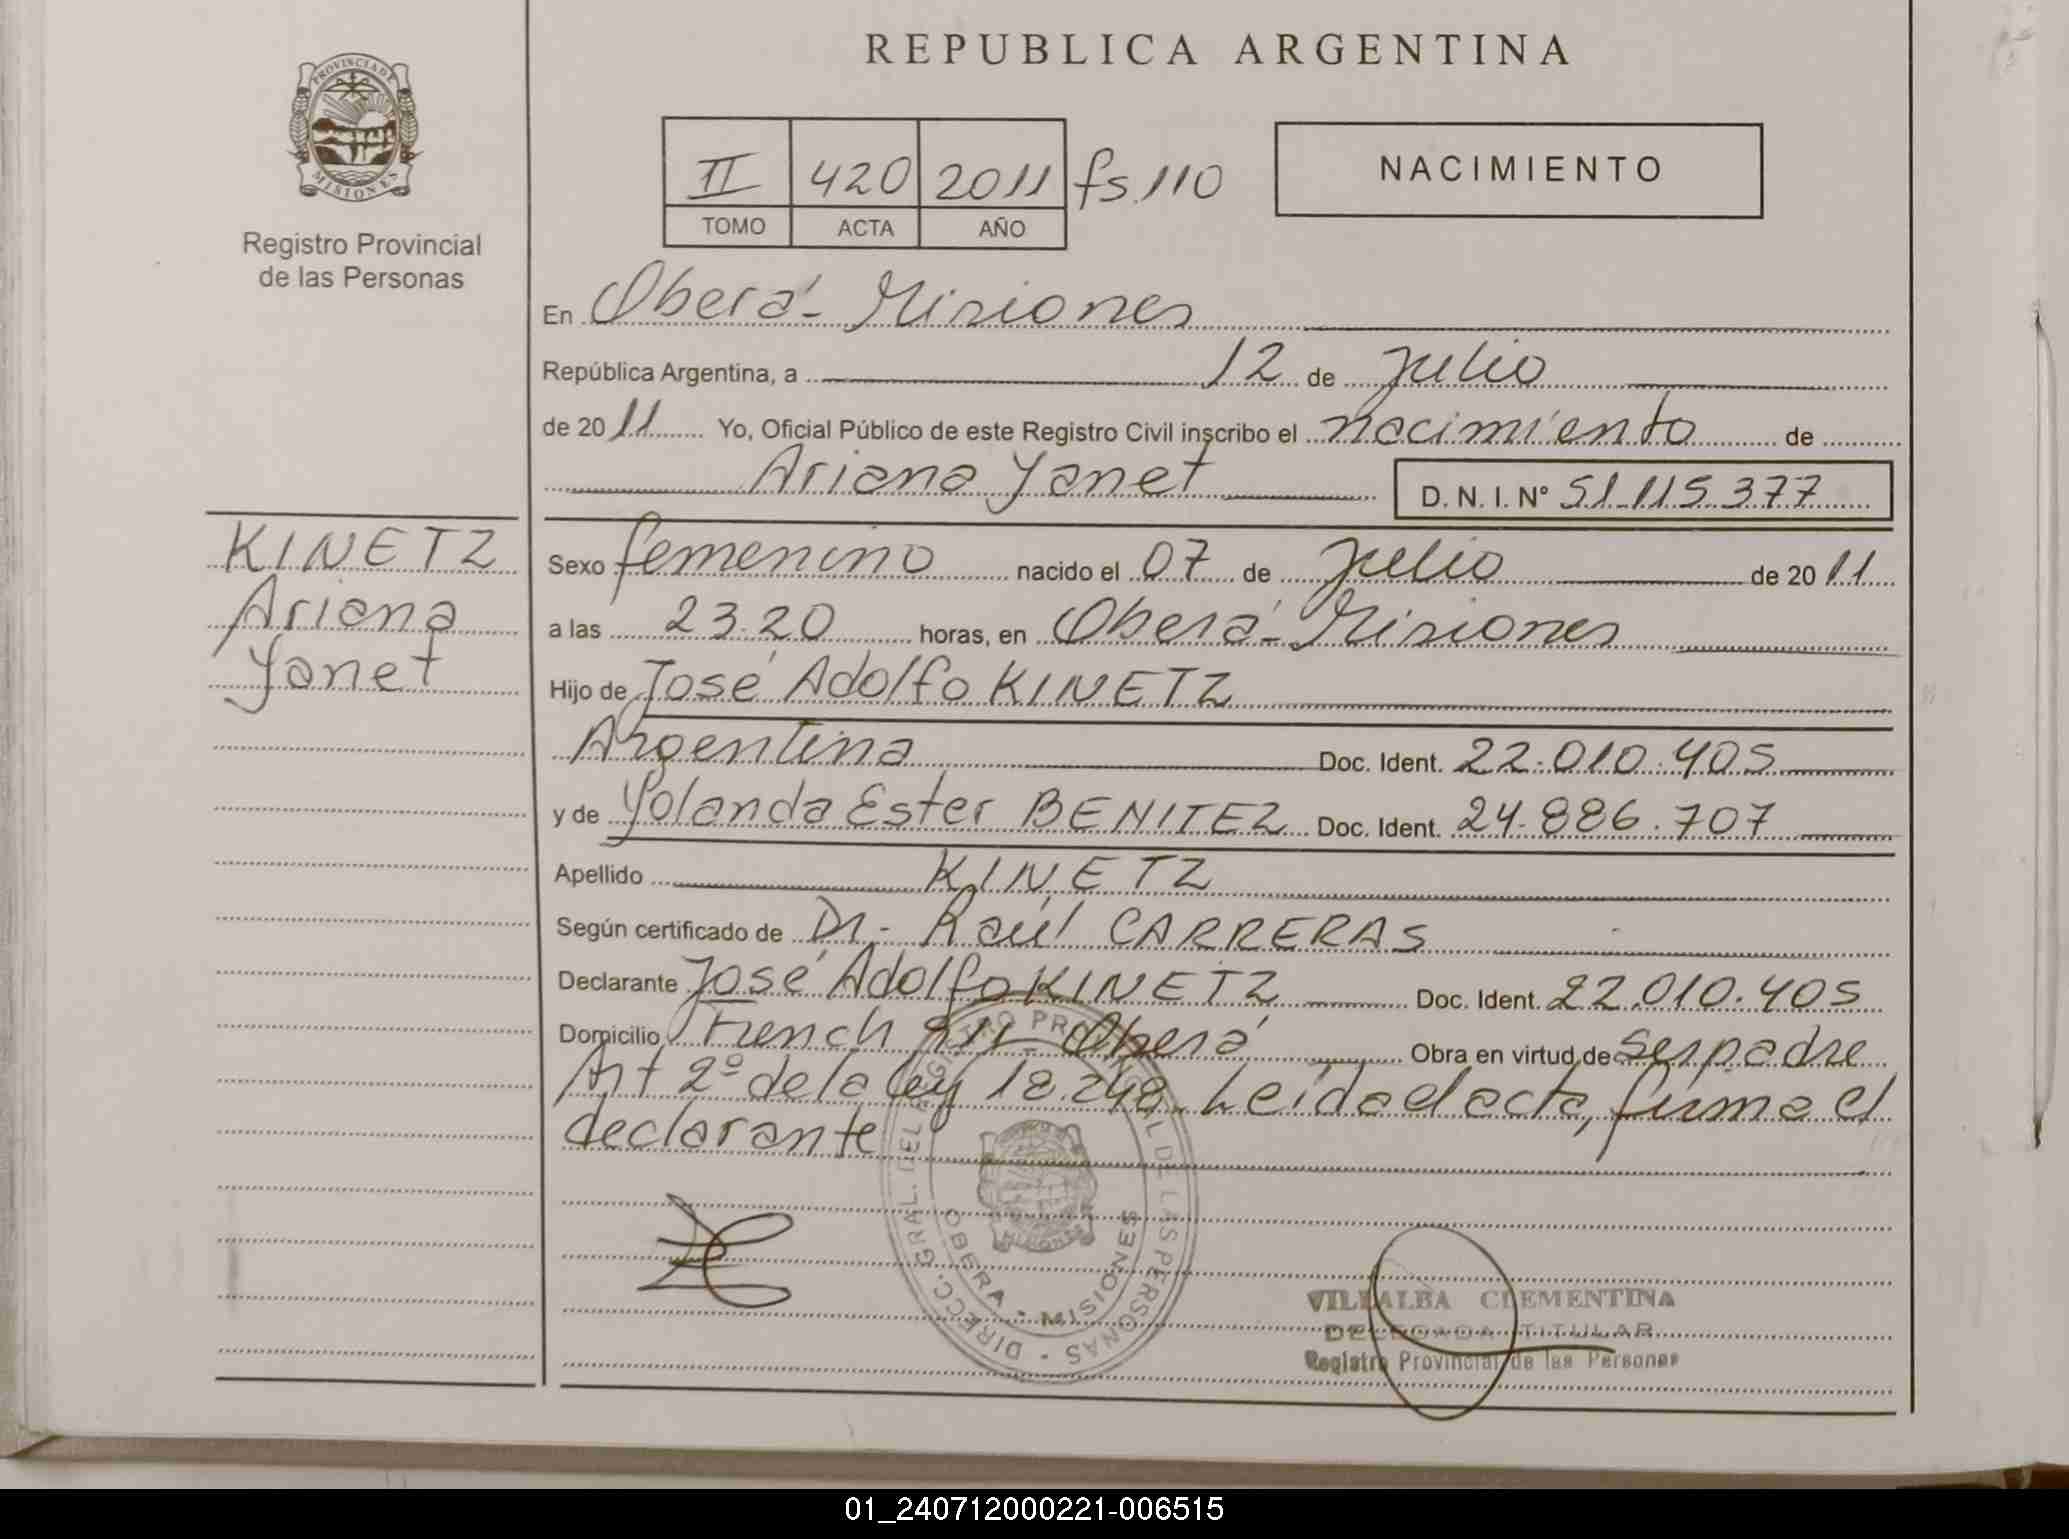 REPUBLICA ARGENTINA
PROVINCIA DE MISIONES
Registro Provincial
de las Personas
II 420 2011 fs. 110
TOMO ACTA AÑO
NACIMIENTO
En Oberá - Misiones
República Argentina, a 12 de Julio
de 2011 Yo, Oficial Público de este Registro Civil inscribo el nacimiento de
Ariana Yanet D.N.I. Nº 51.115.377
KINETZ
Ariana
Yanet
Sexo femenino nacido el 07 de Julio de 2011
a las 23.20 horas, en Oberá - Misiones
Hijo de José Adolfo KINETZ
Argentina Doc. Ident. 22.010.405
y de Yolanda Ester BENITEZ Doc. Ident. 24.886.707
Apellido KINETZ
Según certificado de Dr. Raúl CARRERAS
Declarante José Adolfo KINETZ Doc. Ident. 22.010.405
Domicilio French Oberá Obra en virtud de ser padre
Art 2º de la ley 18.248. Leída el acta, firma el
declarante
DIRECC. GRAL. DEL REGISTRO PROVINCIAL DE LAS PERSONAS
OBERA - MISIONES
MISIONES
VILLALBA CLEMENTINA
DELEGADA TITULAR
Registro Provincial de las Personas
01_240712000221-006515